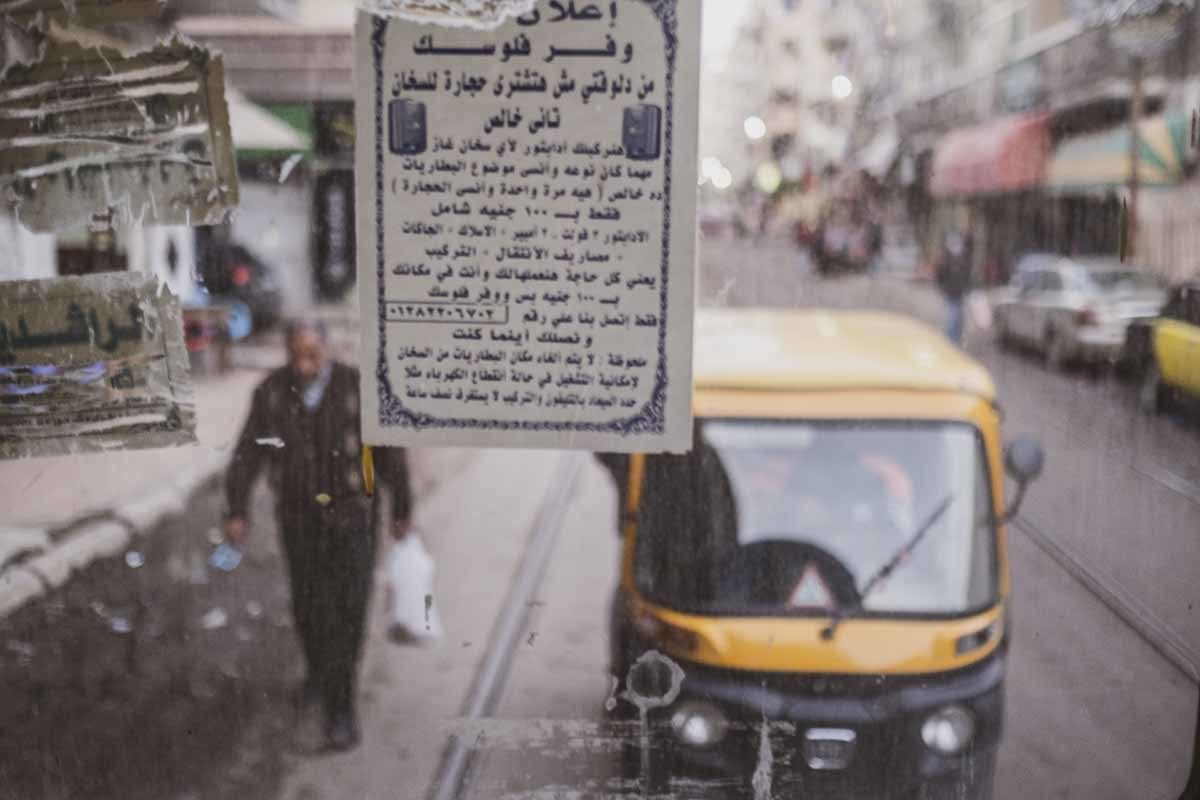 إعلان
وفر فلوسك
من دلوقتي مش هتشترى حجارة للسخان
تانى خالص
هنركبلك أدابتور لأي سخان غاز
مهما كان نوعه وأنسى موضوع البطاريات
ده خالص ( هيه مرة واحدة وأنسى الحجارة )
فقط بـ ١٠٠ جنيه شامل
الادابتور ٣ فولت - ٢ أمبير - الاسلاك - الجاكات
- مصاريف الأنتقال - التركيب
يعني كل حاجة هنعملهالك وأنت في مكانك
بـ ١٠٠ جنيه بس ووفر فلوسك
فقط إتصل بنا علي رقم ٠١٢٨٢٣٠٦٧٠٢
ونصلك أينما كنت
ملحوظة : لا يتم ألغاء مكان البطاريات من السخان
لإمكانية التشغيل في حالة أنقطاع الكهرباء مثلا
حدد الميعاد بالتليفون والتركيب لا يستغرق نصف ساعة